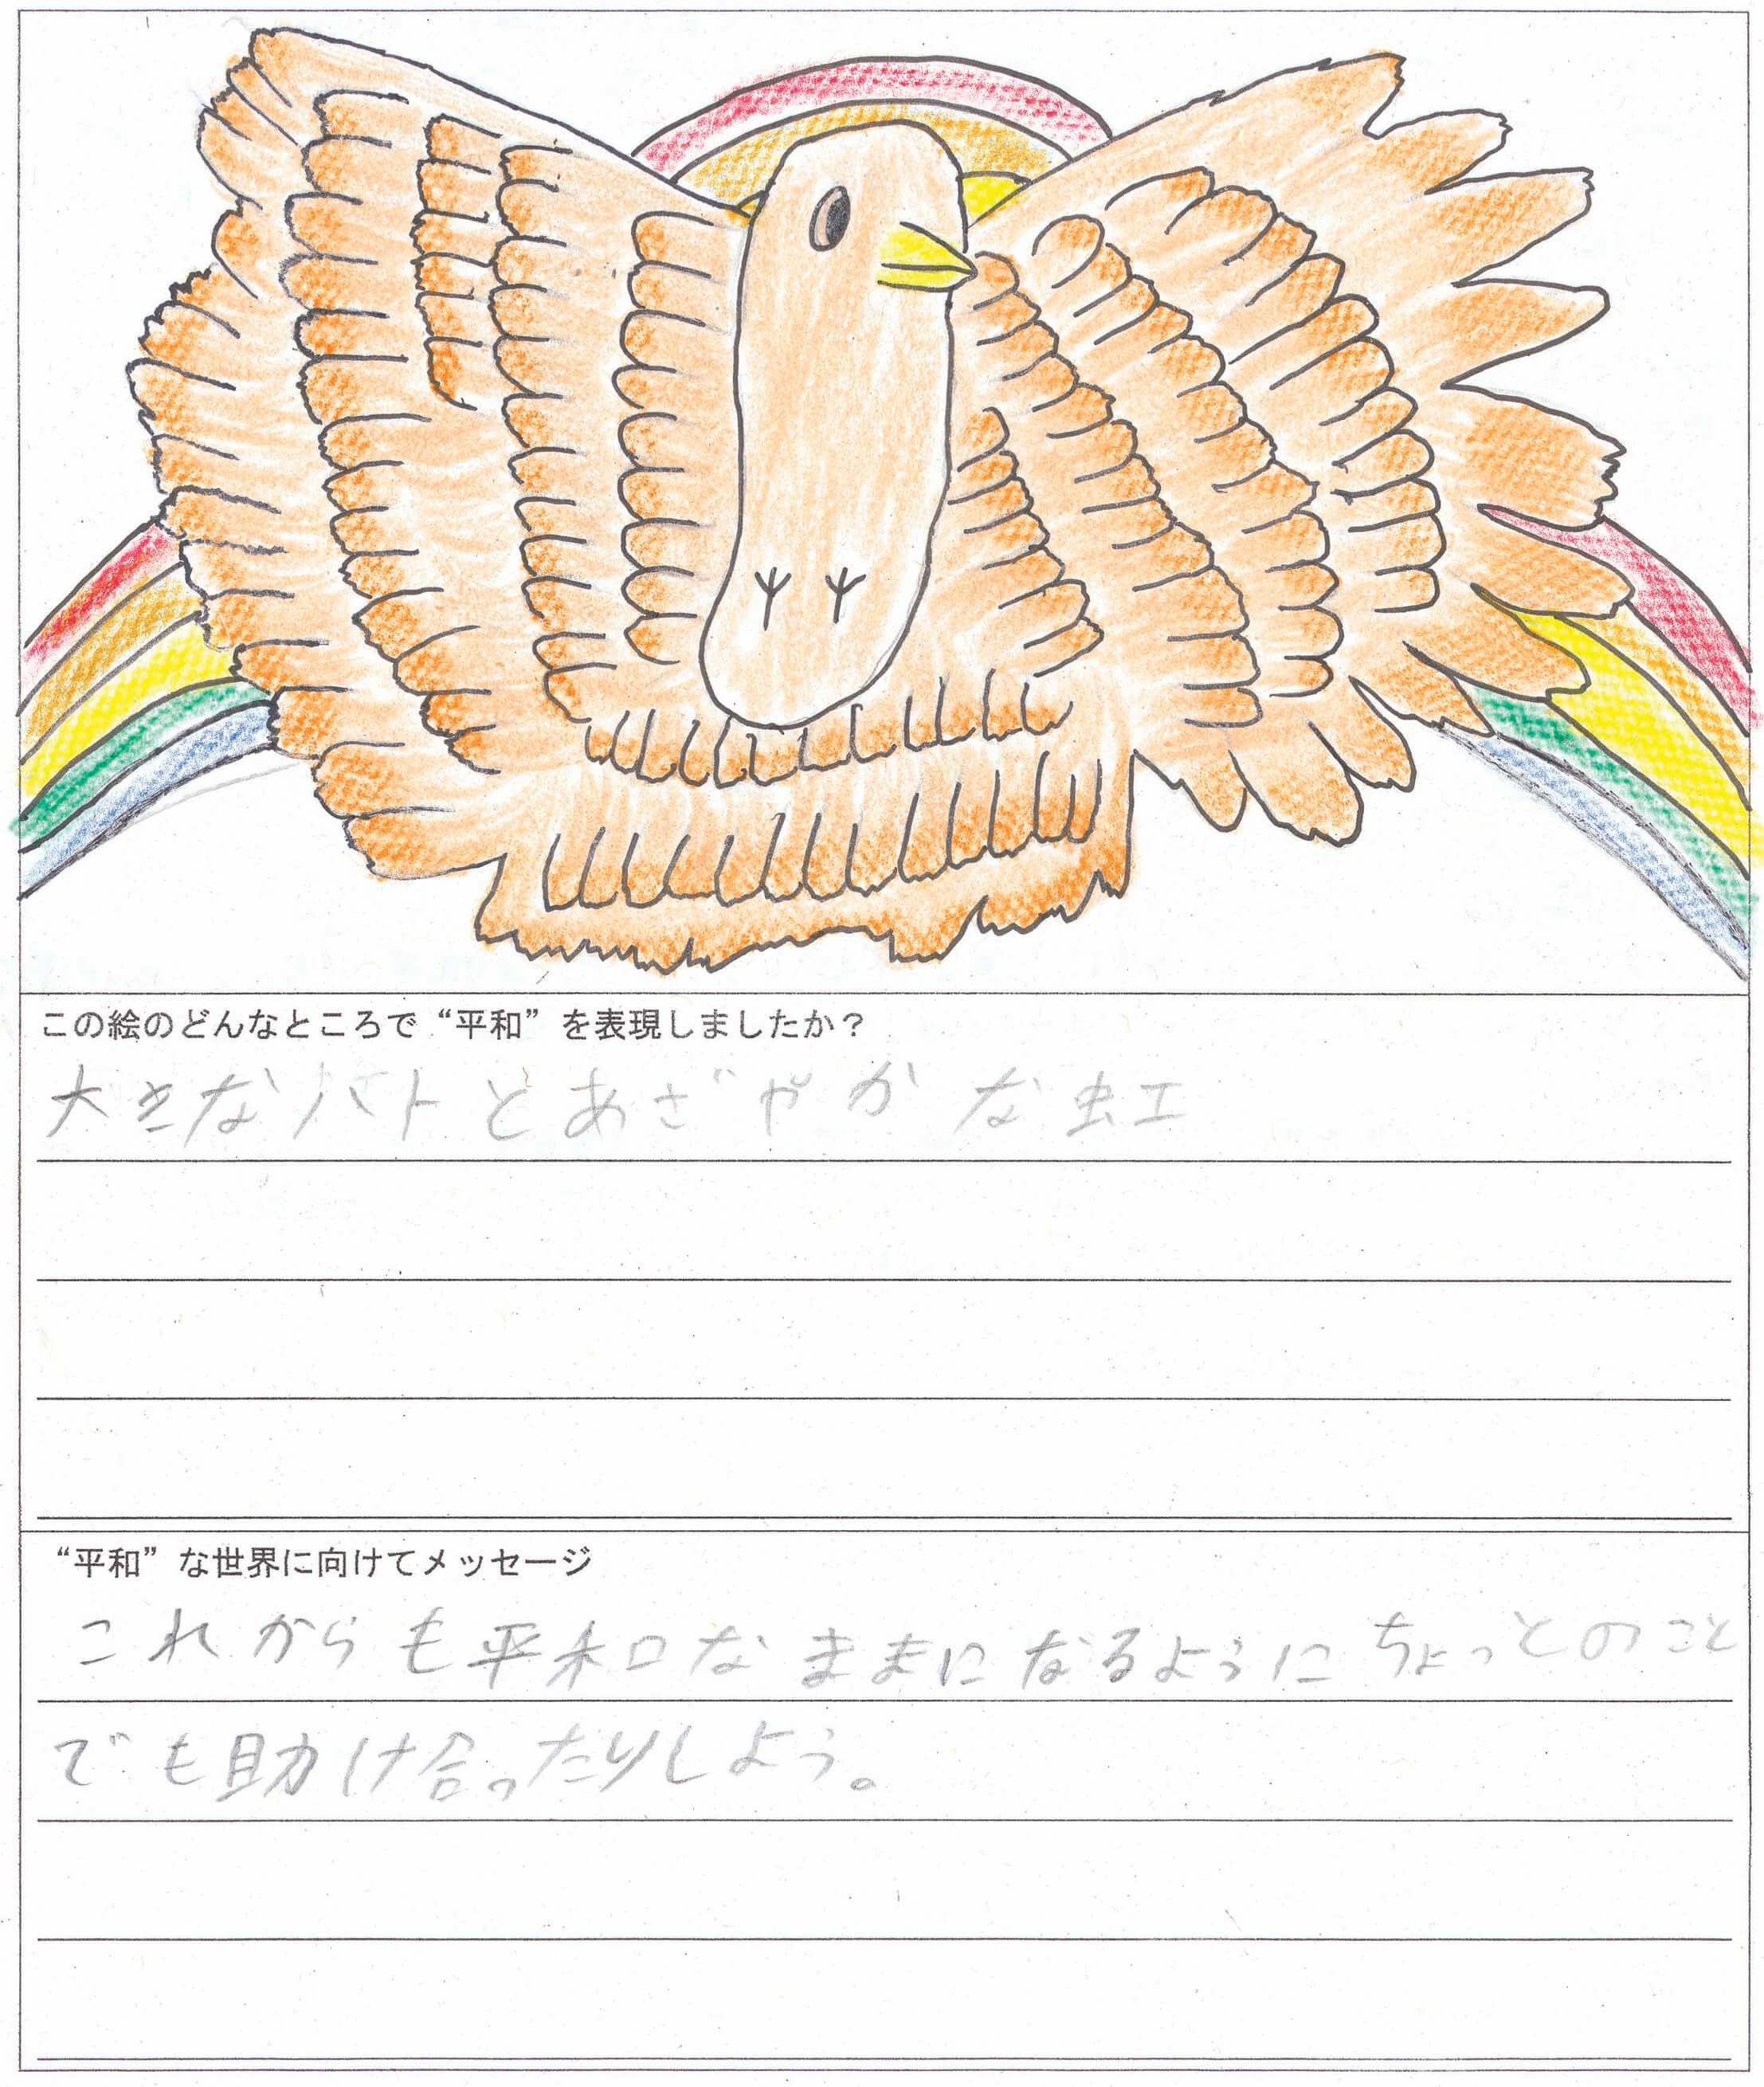 この絵のどんなところで“平和”を表現しましたか？
大きなハトとあざやかな虹
“平和”な世界に向けてメッセージ
これからも平和なままになるようにちょっとのこと
でも助け合ったりしよう。